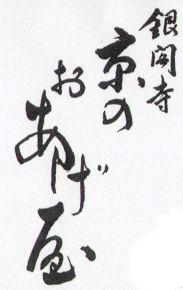 銀閣寺
京の
おあげ屋